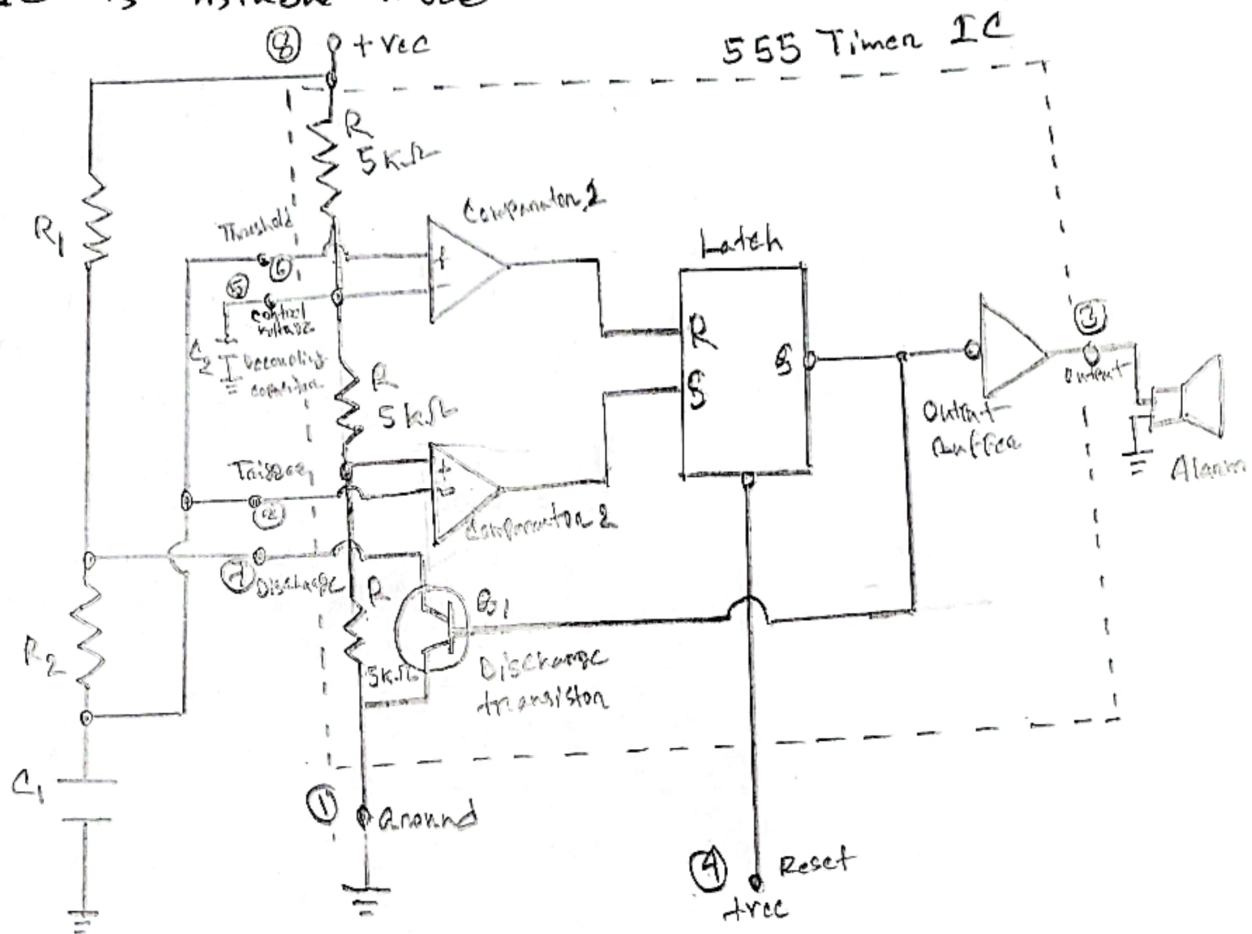 555 Timer IC
⑧ +vcc
R
5KΩ
R1
Threshold
⑥
Comparator 1
+
-
⑤
control
voltage
C2
Decoupling
capacitor
Latch
R
S
③
output
Output
Buffer
Alarm
R
5KΩ
Trigger
②
+
-
Comparator 2
⑦ Discharge
R
5KΩ
Discharge
transistor
R2
C1
① Ground
④ Reset
+vcc